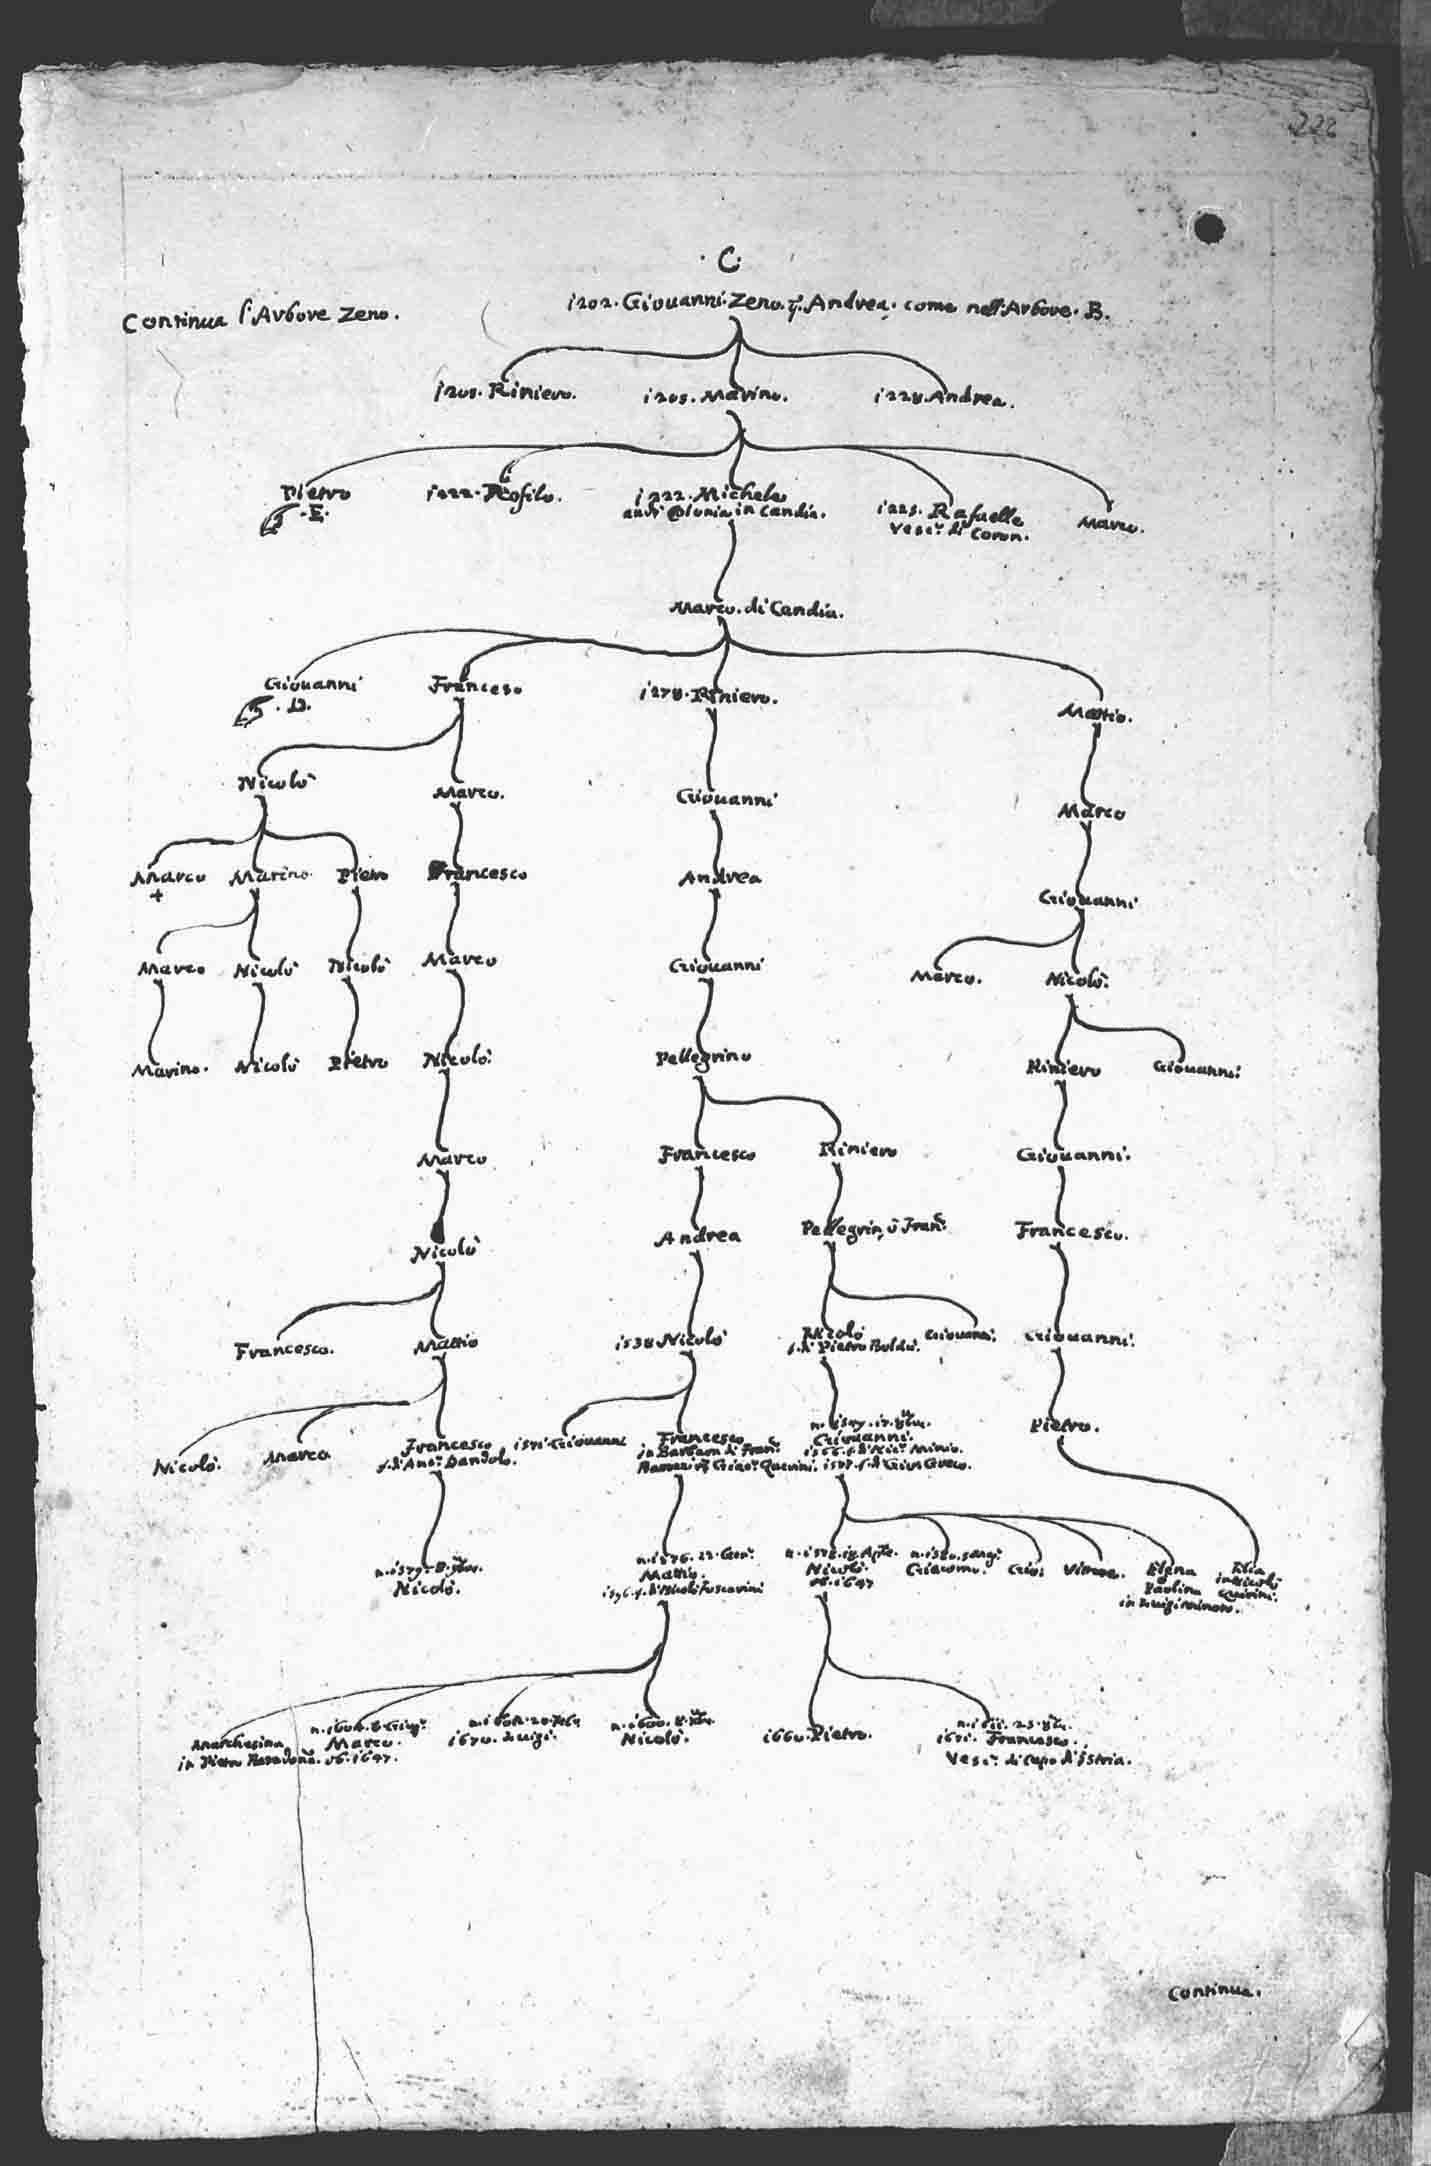 222
· C ·
Continua l'Arbore Zeno.
1202. Giouanni Zeno. q. Andrea. come nell'Arbore. B.
1205. Riniero.
1205. Marino.
1228. Andrea.
Pietro
. E.
1222. Teofilo.
1222. Michele
andò Colonia in Candia.
1225. Rafaelle
Vesc.º di Coron.
Marco.
Marco. di Candia.
Giouanni
. D.
Francesco
1278. Riniero.
Mattio.
Nicolò
Marco.
Giouanni
Marco
Marco
+
Marino
Pietro
Francesco
Andrea
Giouanni
Marco
Nicolò
Nicolò
Marco
Giouanni
Marco.
Nicolò.
Marino.
Nicolò
Pietro
Nicolò.
Pellegrino
Riniero
Giouanni.
Marco
Francesco
Riniero
Giouanni.
Nicolò
Andrea
Pellegrin, ò Fran.º
Francesco.
Francesco.
Mattio
1538 Nicolò
Nicolò
f. di Pietro Boldù.
Giouanni.
Giouanni.
Nicolò.
Marco
Francesco
f. di Ant.º Dandolo.
1571. Giouanni
Francesco
in Barbara di Fran.º
Giouanni.
Pietro.
Nicolò.
Mattio.
1596. f. di Nicolò Foscarini
Nicolò.
Giacomo.
Elena
Paolina
in Luigi Minoto.
in Nicolò
Quirini.
Marchesina
in Pietro
Marco.
ob. 1647.
1670. Luigi.
Nicolò.
1660. Pietro.
1651. Francesco.
Vesc.º di Capo d'Istria.
Continua.